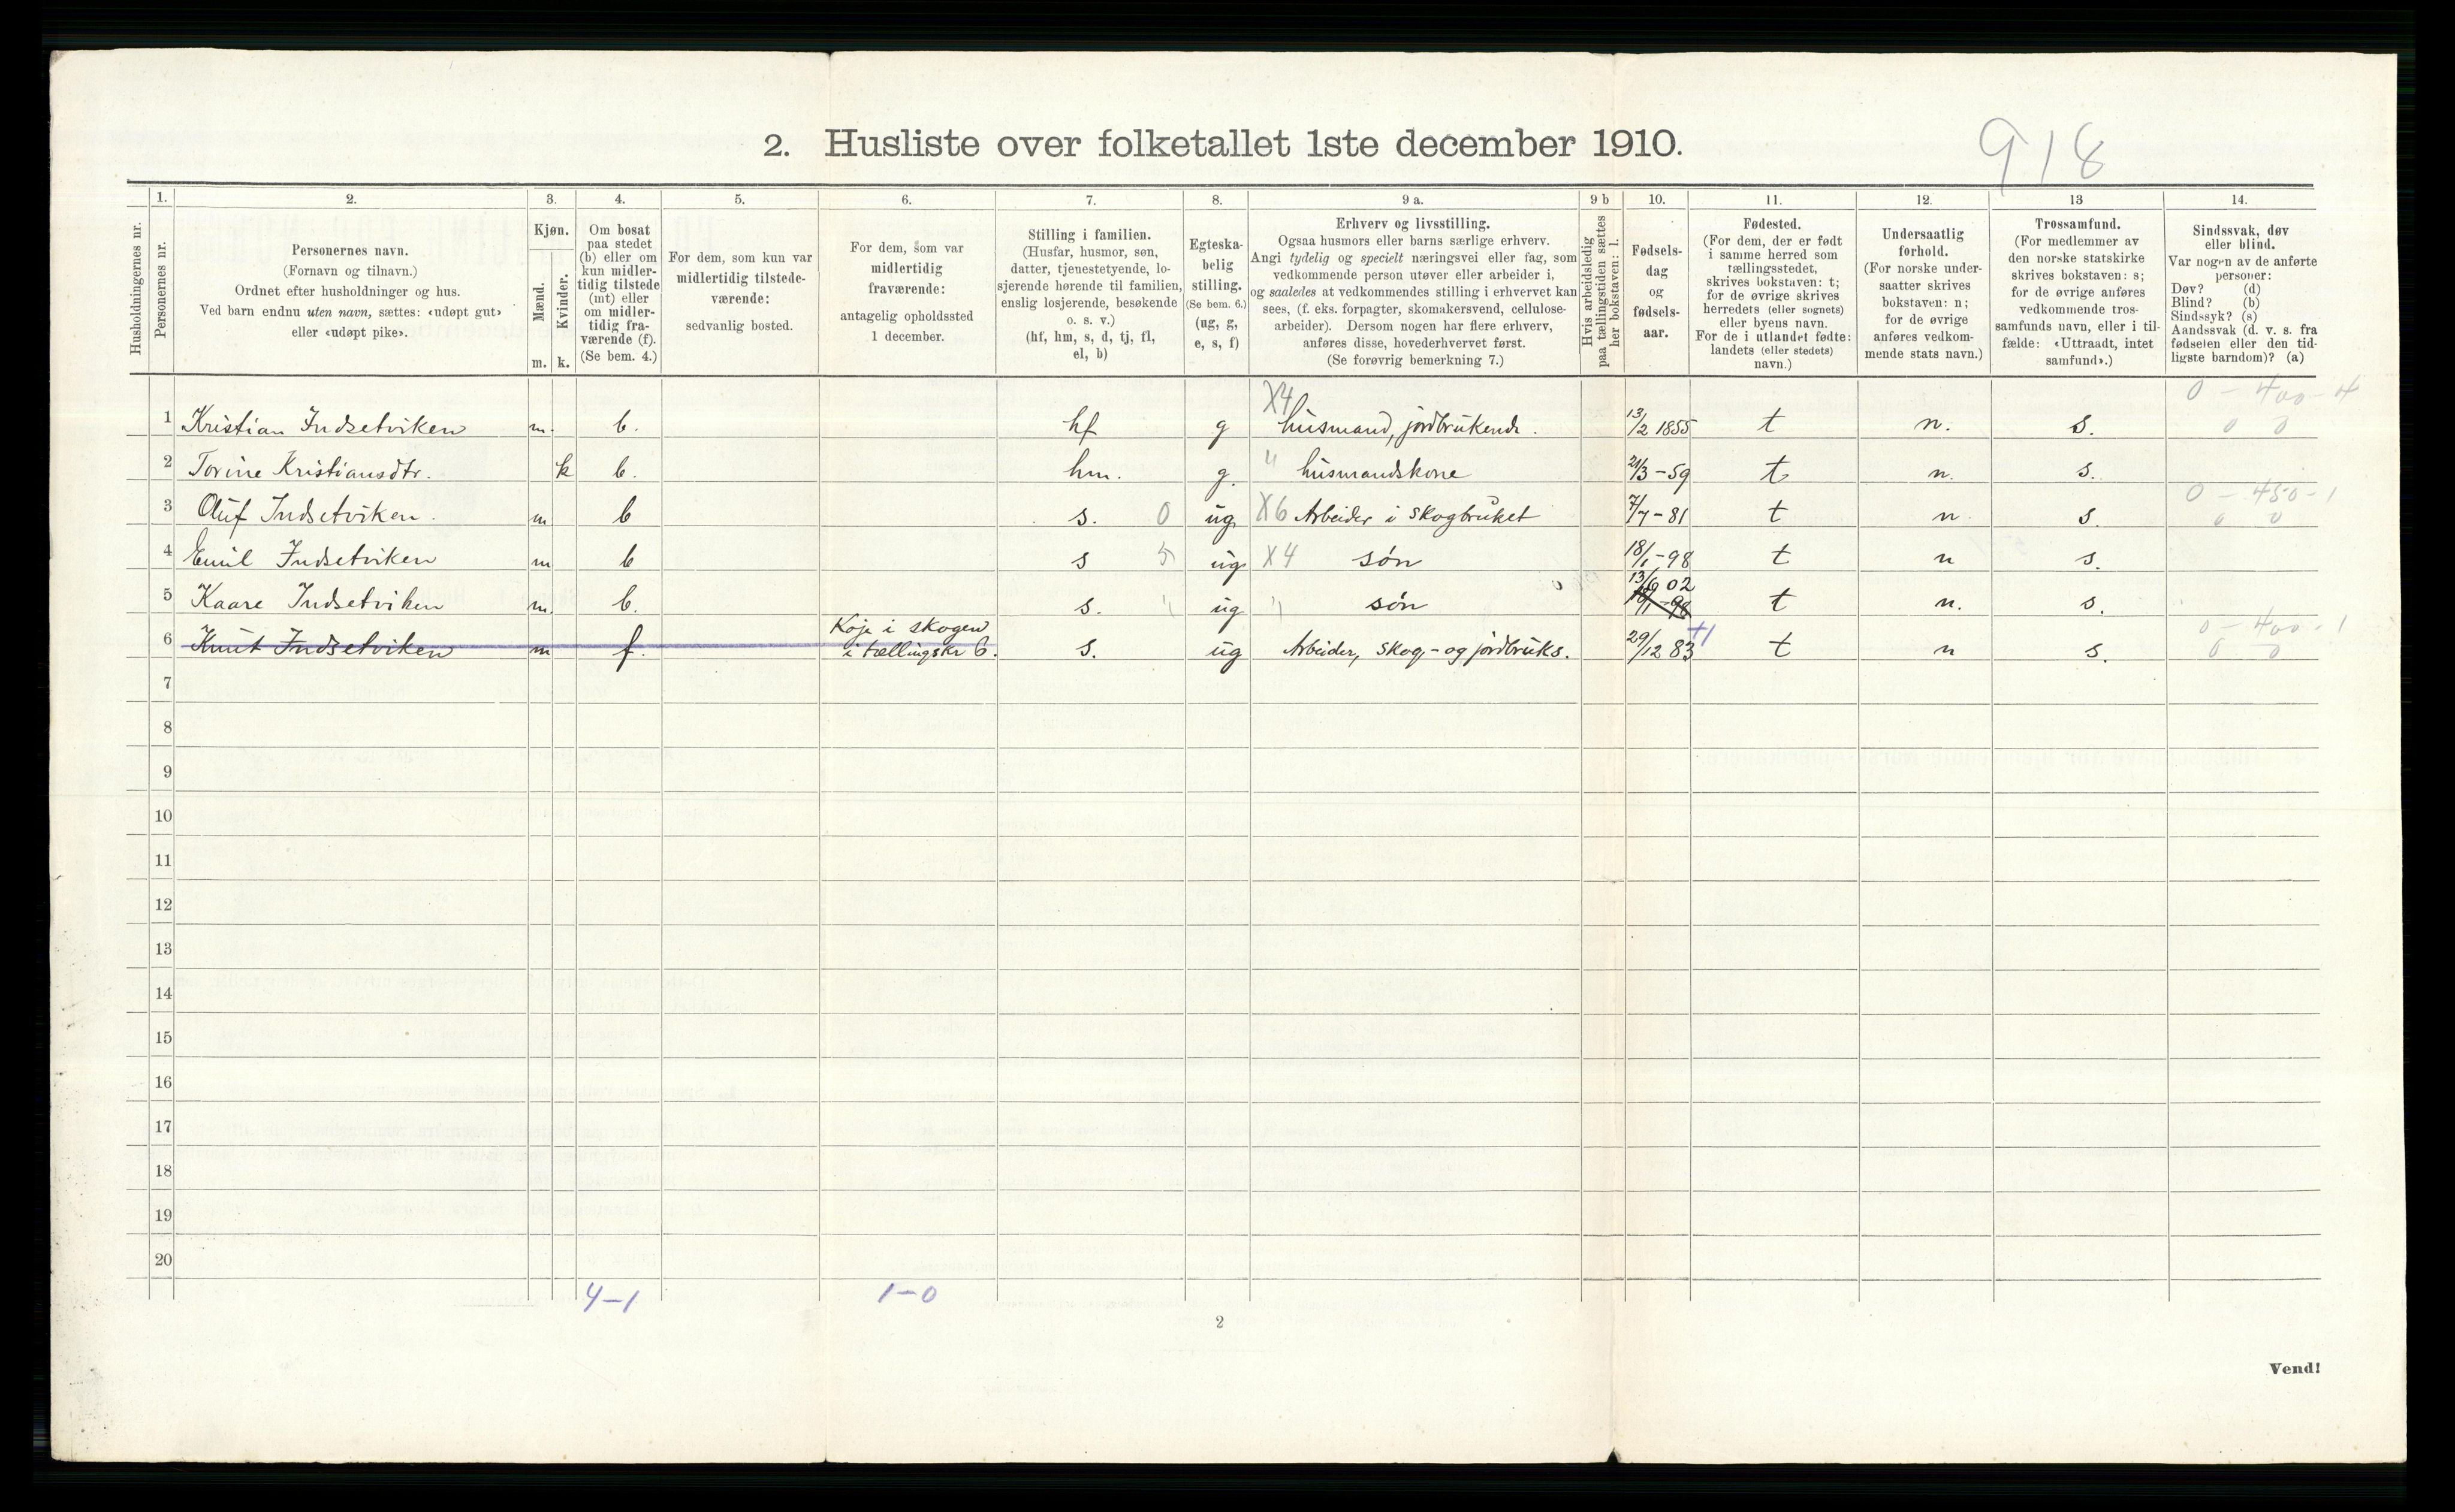 2. Husliste over folketallet 1ste december 1910.
918
Husholdningernes nr.
1.
Personernes nr.
2.
Personernes navn.
(Fornavn og tilnavn.)
Ordnet efter husholdninger og hus.
Ved barn endnu uten navn, sættes: «udøpt gut»
eller «udøpt pike».
3.
Kjøn.
Mænd.
Kvinder.
m. k.
4.
Om bosat
paa stedet
(b) eller om
kun midler-
tidig tilstede
(mt) eller
om midler-
tidig fra-
værende (f).
(Se bem. 4.)
5.
For dem, som kun var
midlertidig tilstede-
værende:
sedvanlig bosted.
6.
For dem, som var
midlertidig
fraværende:
antagelig opholdssted
1 december.
7.
Stilling i familien.
(Husfar, husmor, søn,
datter, tjenestetyende, lo-
sjerende hørende til familien,
enslig losjerende, besøkende
o. s. v.)
(hf, hm, s, d, tj, fl,
el, b)
8.
Egteska-
belig
stilling.
(Se bem. 6.)
(ug, g,
e, s, f)
9 a.
Erhverv og livsstilling.
Ogsaa husmors eller barns særlige erhverv.
Angi tydelig og specielt næringsvei eller fag, som
vedkommende person utøver eller arbeider i,
og saaledes at vedkommendes stilling i erhvervet kan
sees, (f. eks. forpagter, skomakersvend, cellulose-
arbeider). Dersom nogen har flere erhverv,
anføres disse, hovederhvervet først.
(Se forøvrig bemerkning 7.)
9 b
Hvis arbeidsledig
paa tællingstiden sættes
her bokstaven: l.
10.
Fødsels-
dag
og
fødsels-
aar.
11.
Fødested.
(For dem, der er født
i samme herred som
tællingsstedet,
skrives bokstaven: t;
for de øvrige skrives
herredets (eller sognets)
eller byens navn.
For de i utlandet fødte:
landets (eller stedets)
navn.)
12.
Undersaatlig
forhold.
(For norske under-
saatter skrives
bokstaven: n;
for de øvrige
anføres vedkom-
mende stats navn.)
13
Trossamfund.
(For medlemmer av
den norske statskirke
skrives bokstaven: s;
for de øvrige anføres
vedkommende tros-
samfunds navn, eller i til-
fælde: «Uttraadt, intet
samfund».)
14.
Sindssvak, døv
eller blind.
Var nogen av de anførte
personer:
Døv? (d)
Blind? (b)
Sindssyk? (s)
Aandssvak (d. v. s. fra
fødselen eller den tid-
ligste barndom)? (a)
X4 0 - 400 - 4
1 Kristian Indsetviken m. b. hf g husmand, jordbrukende. 13/2 1855 t n. s. 0 0
2 Torine Kristiansdtr. k b. hm. g. " husmandskone 21/3 - 59 t n. s.
0 - 450 - 1
3 Oluf Indsetviken. m b s. 0 ug X6 Arbeider i skogbruket 7/7 - 81 t n s. 0 0
4 Emil Indsetviken m b s 5 ug X4 søn 18/1 - 98 t n s.
13/9 02
5 Kaare Indsetviken m. b. s. " ug " søn 18/1 - 98 t n. s.
Koje i skogen +1 0 - 400 - 1
6 Knut Indsetviken m f. i tællingskr 6. s. ug Arbeider, skog,- og jordbruks. 29/12 83 t n s. 0 0
7
8
9
10
11
12
13
14
15
16
17
18
19
20
4-1 1-0
2
Vend!